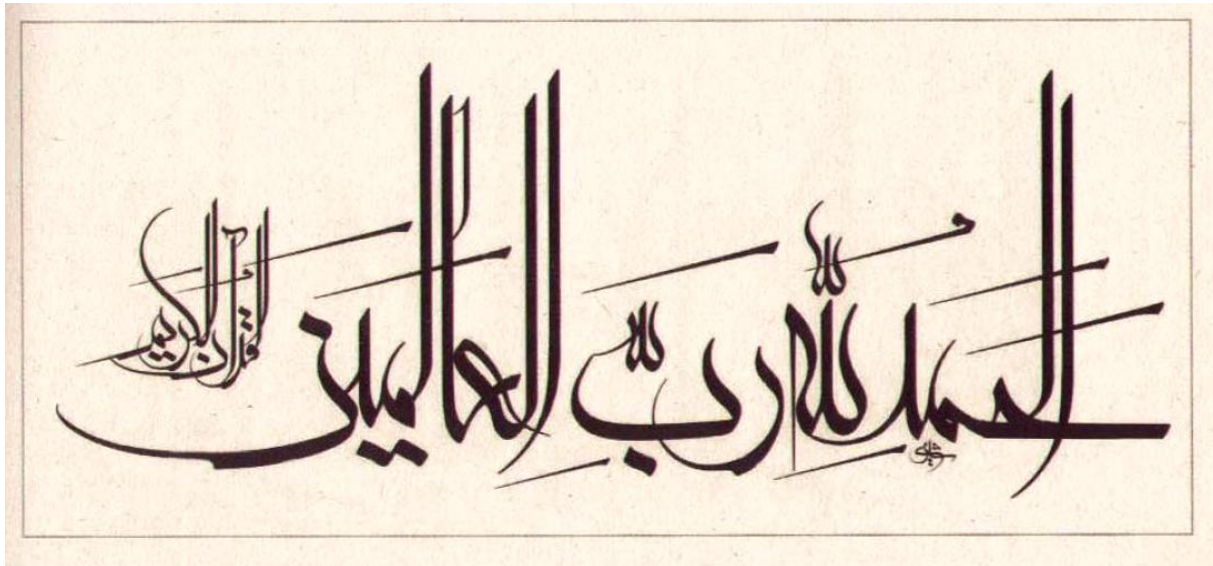 الحمدُ لِلّٰهِ رَبِّ الْعَالَمِينَ
القرآن الكريم